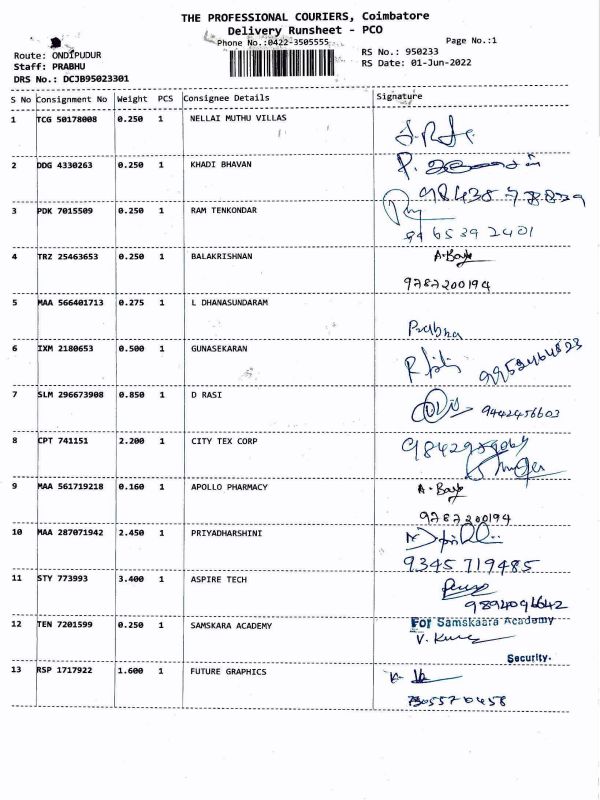 THE PROFESSIONAL COURIERS, Coimbatore
Delivery Runsheet - PCO
Phone No.:0422-3505555
Page No.:1
Route: ONDIPUDUR
RS No.: 950233
Staff: PRABHU
RS Date: 01-Jun-2022
DRS No.: DCJB95023301
S No Consignment No Weight PCS Consignee Details Signature
1 TCG 50178008 0.250 1 NELLAI MUTHU VILLAS
2 DDG 4330263 0.250 1 KHADI BHAVAN
3 PDK 7015509 0.250 1 RAM TENKONDAR
9465392401
4 TRZ 25463653 0.250 1 BALAKRISHNAN
9787200194
5 MAA 566401713 0.275 1 L DHANASUNDARAM
Prabha
6 IXM 2180653 0.500 1 GUNASEKARAN
7 SLM 296673908 0.850 1 D RASI
9442456603
8 CPT 741151 2.200 1 CITY TEX CORP
9 MAA 561719218 0.160 1 APOLLO PHARMACY
9787200194
10 MAA 287071942 2.450 1 PRIYADHARSHINI
9345719485
11 STY 773993 3.400 1 ASPIRE TECH
12 TEN 7201599 0.250 1 SAMSKARA ACADEMY
For Samskaara Academy
Security.
13 RSP 1717922 1.600 1 FUTURE GRAPHICS